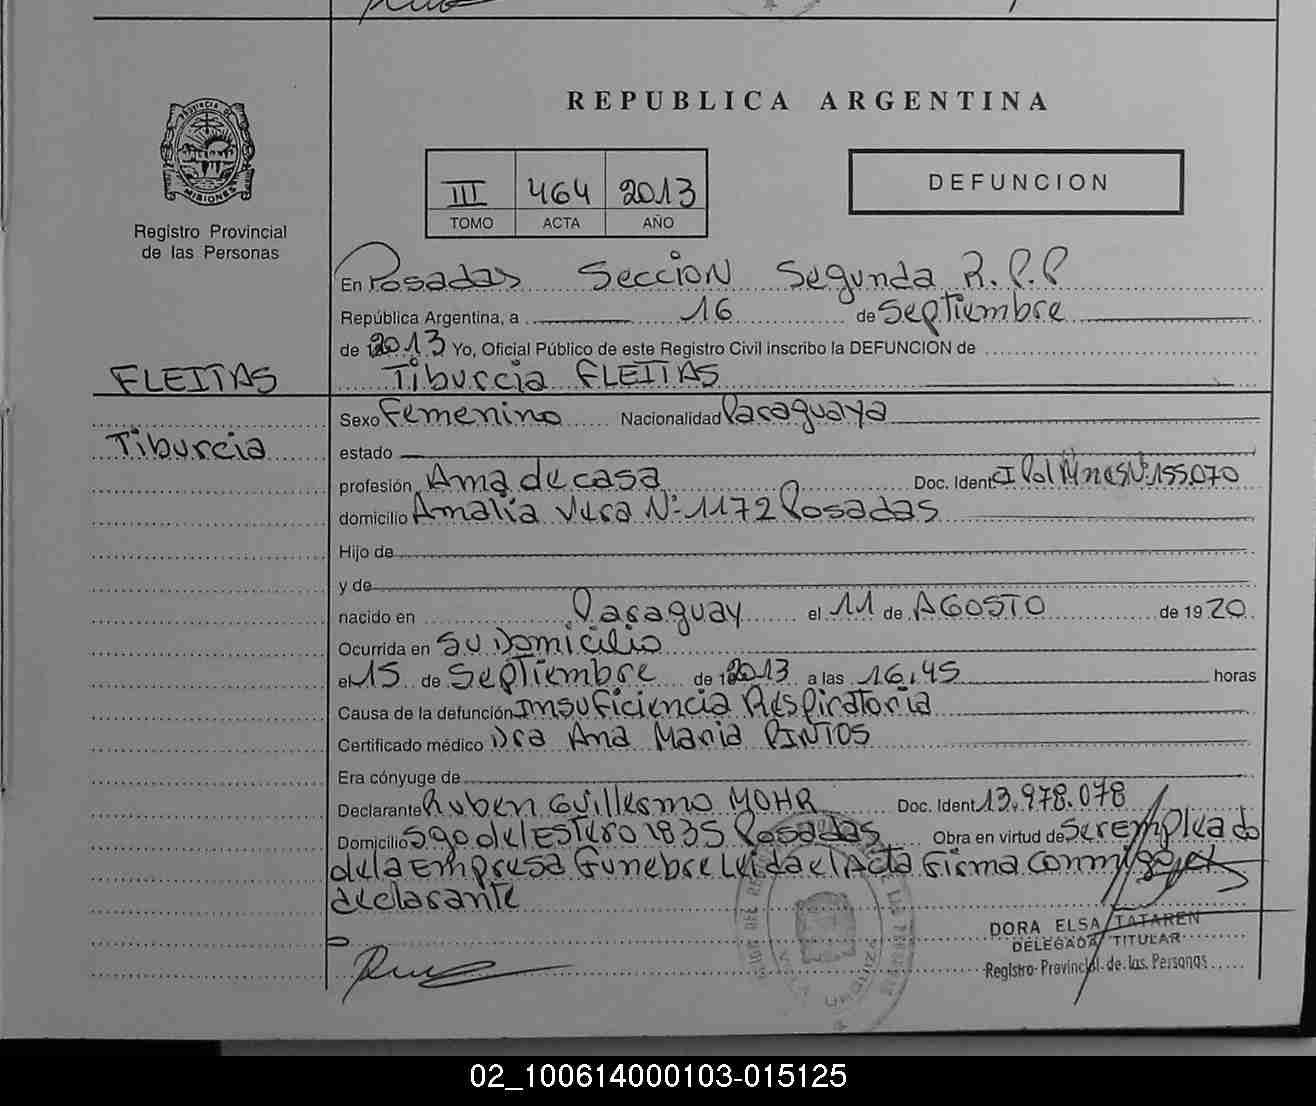 REPUBLICA ARGENTINA
PROVINCIA DE
MISIONES
Registro Provincial
de las Personas
III 464 2013
TOMO ACTA AÑO
DEFUNCION
En Posadas Seccion Segunda R.P.P
República Argentina, a 16 de Septiembre
de 2013 Yo, Oficial Público de este Registro Civil inscribo la DEFUNCION de
FLEITAS
Tiburcia FLEITAS
Sexo Femenino Nacionalidad Paraguaya
Tiburcia
estado
profesión Ama de casa Doc. Ident. CI Pol Mnes Nº 155.070
domicilio Amalia Vera Nº 1172 Posadas
Hijo de
y de
nacido en Paraguay el 11 de AGOSTO de 1920
Ocurrida en Su Domicilio
el 15 de Septiembre de 2013 a las 16,45 horas
Causa de la defunción Insuficiencia Respiratoria
Certificado médico Dra Ana Maria PINTOS
Era cónyuge de
Declarante Ruben Guillermo MOHR Doc. Ident. 13.978.078
Domicilio Sgo del Estero 1835 Posadas Obra en virtud de Ser empleado
de la Empresa Funebre Leida el Acta Firma Conmigo el
declarante
VILLA URQUIZA
DORA ELSA TATAREN
DELEGADA TITULAR
Registro Provincial de las Personas
02_100614000103-015125